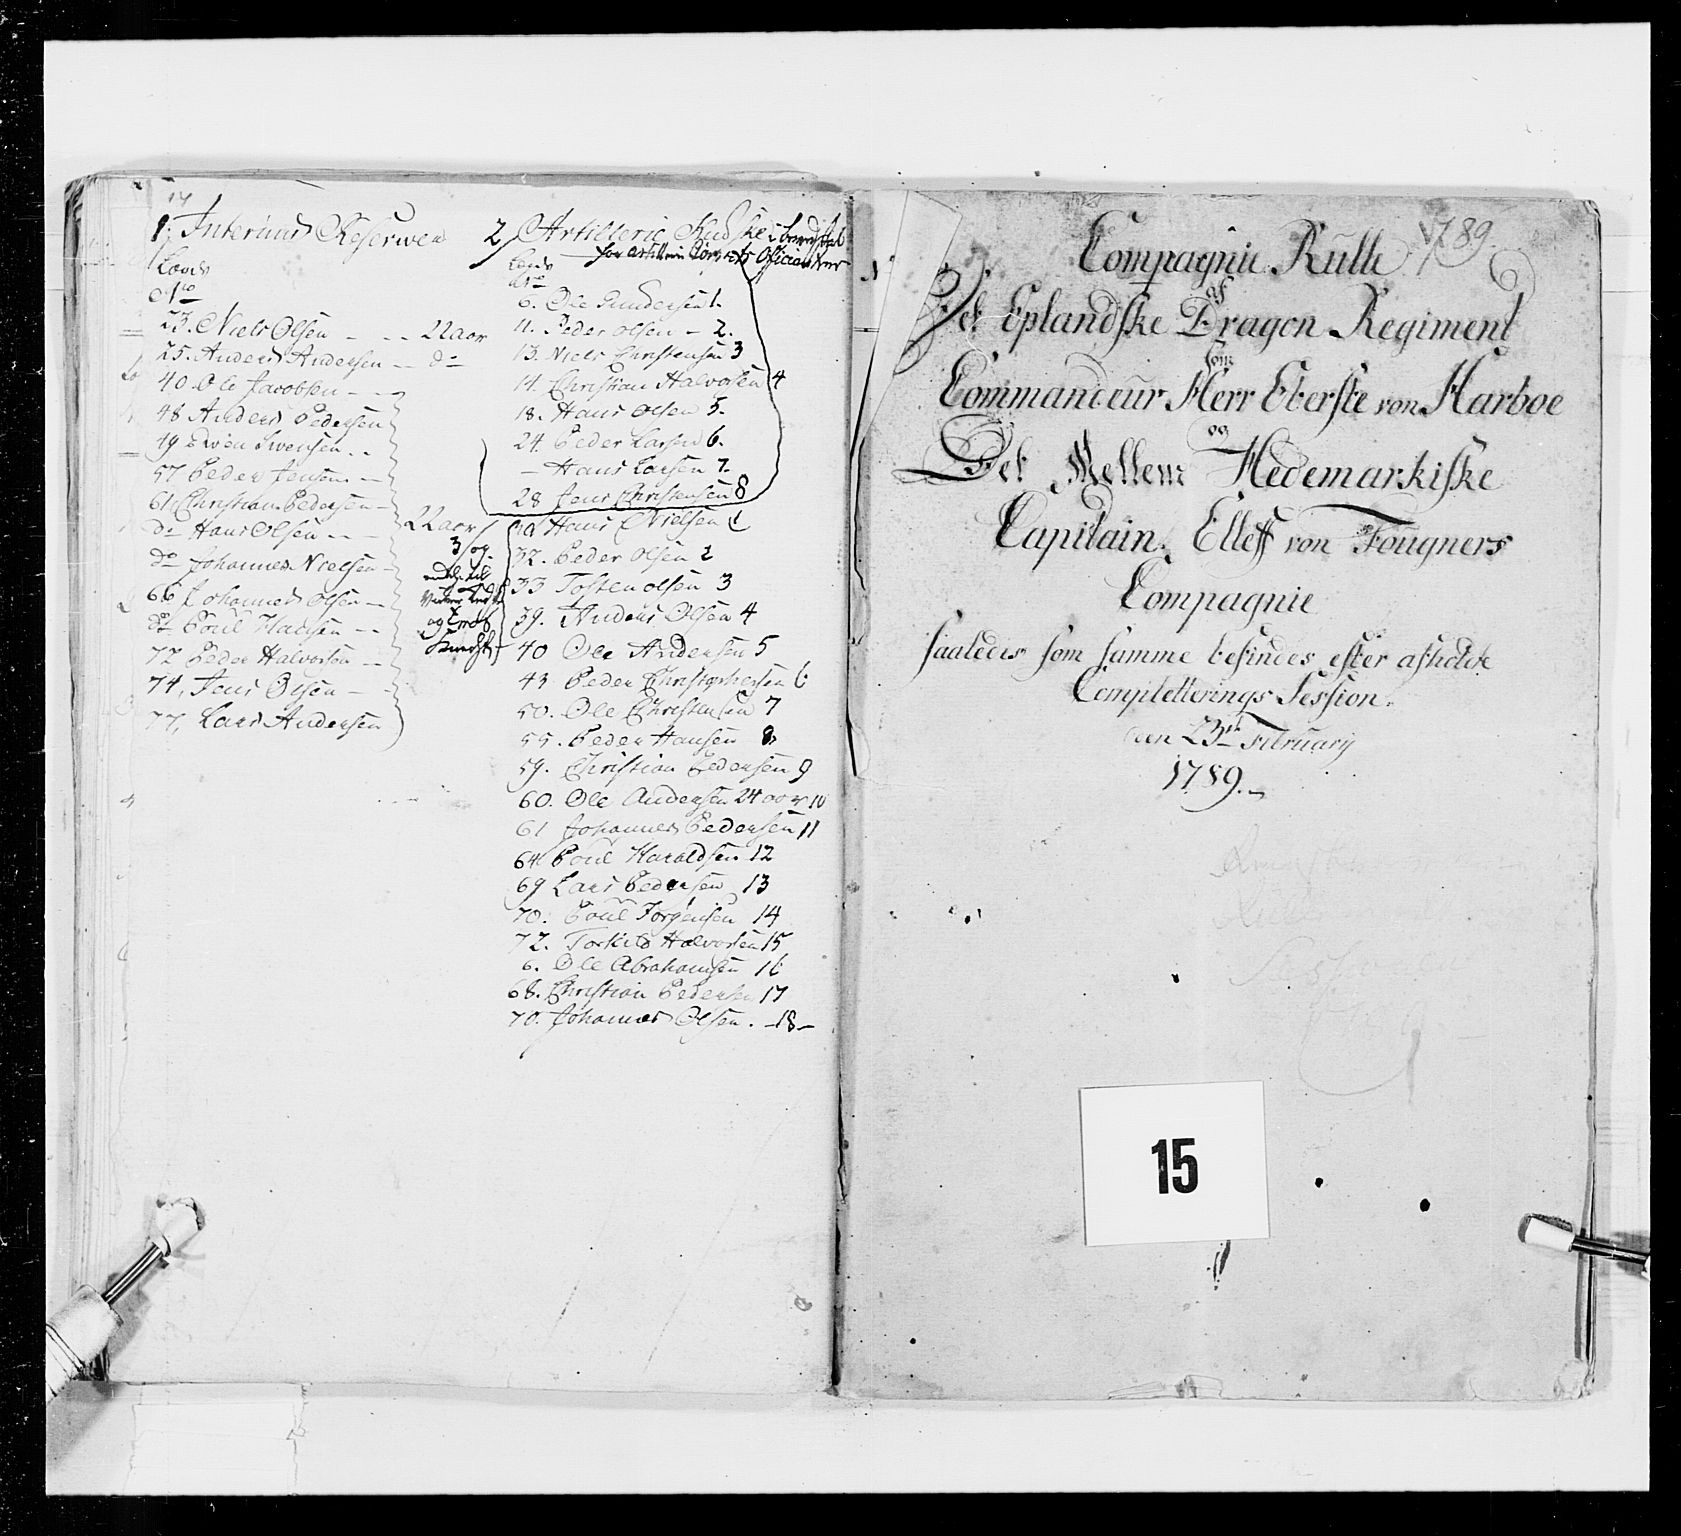 1. Interims Reserwen
Lands
No
23. Niels Olsen - - - 22 aar
25. Anders Andersen - - do
40. Ole Jacobsen - - -
48 Anders Pedersen
49 Swen Swensen - -
57 Peder Jensen - -
61. Christian Pedersen -
do Hans Olsen - - -
do Johannes Nielsen -
66 Johannes Olsen - -
do Poul Hansen - -
72 Peder Halvorsen - -
74, Jens Olsen - -
77, Lars Andersen
22 aar
3/ og
og
2, Artillerie Kudske
for Artillerie Corpsets Officianter
Lands
No
6. Ole Andersen 1.
11. Peder Olsen - 2.
13. Niels Christensen 3
14. Christian Halvorsen 4
18. Hans Olsen 5.
24. Peder Larsen 6.
- Hans Larsen 7.
28 Jens Christensen 8
Hans Nielsen 1
32. Peder Olsen 2
33 Tosten Olsen 3
39. Anders Olsen 4
40 Ole Andersen 5
43 Peder Christophersen 6
50. Ole Christensen 7
55. Peder Hansen 8.
59. Christian Pedersen 9
60. Ole Andersen 24 aar 10
61 Johannes Pedersen 11
64 Poul Haraldsen 12
69 Lars Pedersen 13
70. Poul Jorgensen 14
72. Torkild Halvorsen 15
6. Ole Abrahamsen 16
68. Christian Pedersen 17
70. Johannes Olsen. -18-
1789.
Compagnie Rulle
af
Det Oplandske Dragon Regiment
som
Commandeur Herr Oberste von Harboe
og
Det Mellem Hedemarkiske
Capitain Elleff von Fougners
Compagnie
saaledes som samme befindes efter afholdte
Completterings Session.
den 23de February
1789.-
15